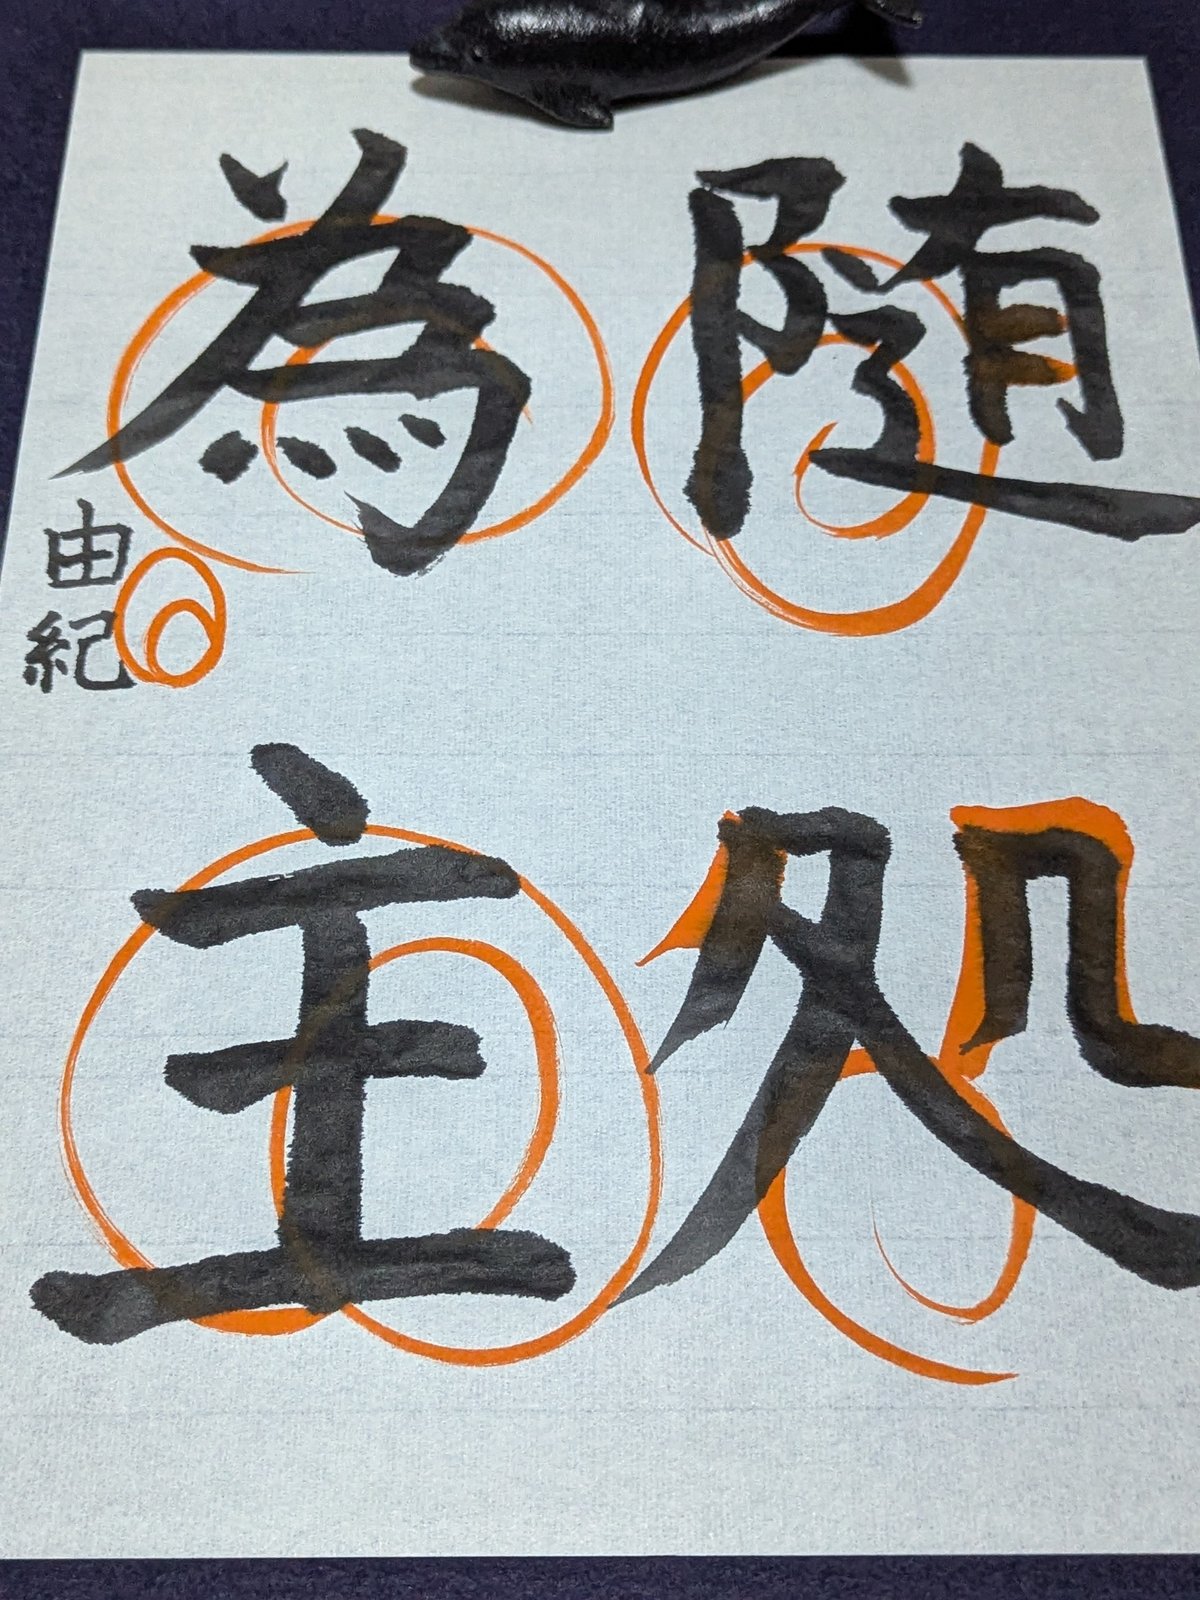 随処
為主
由紀